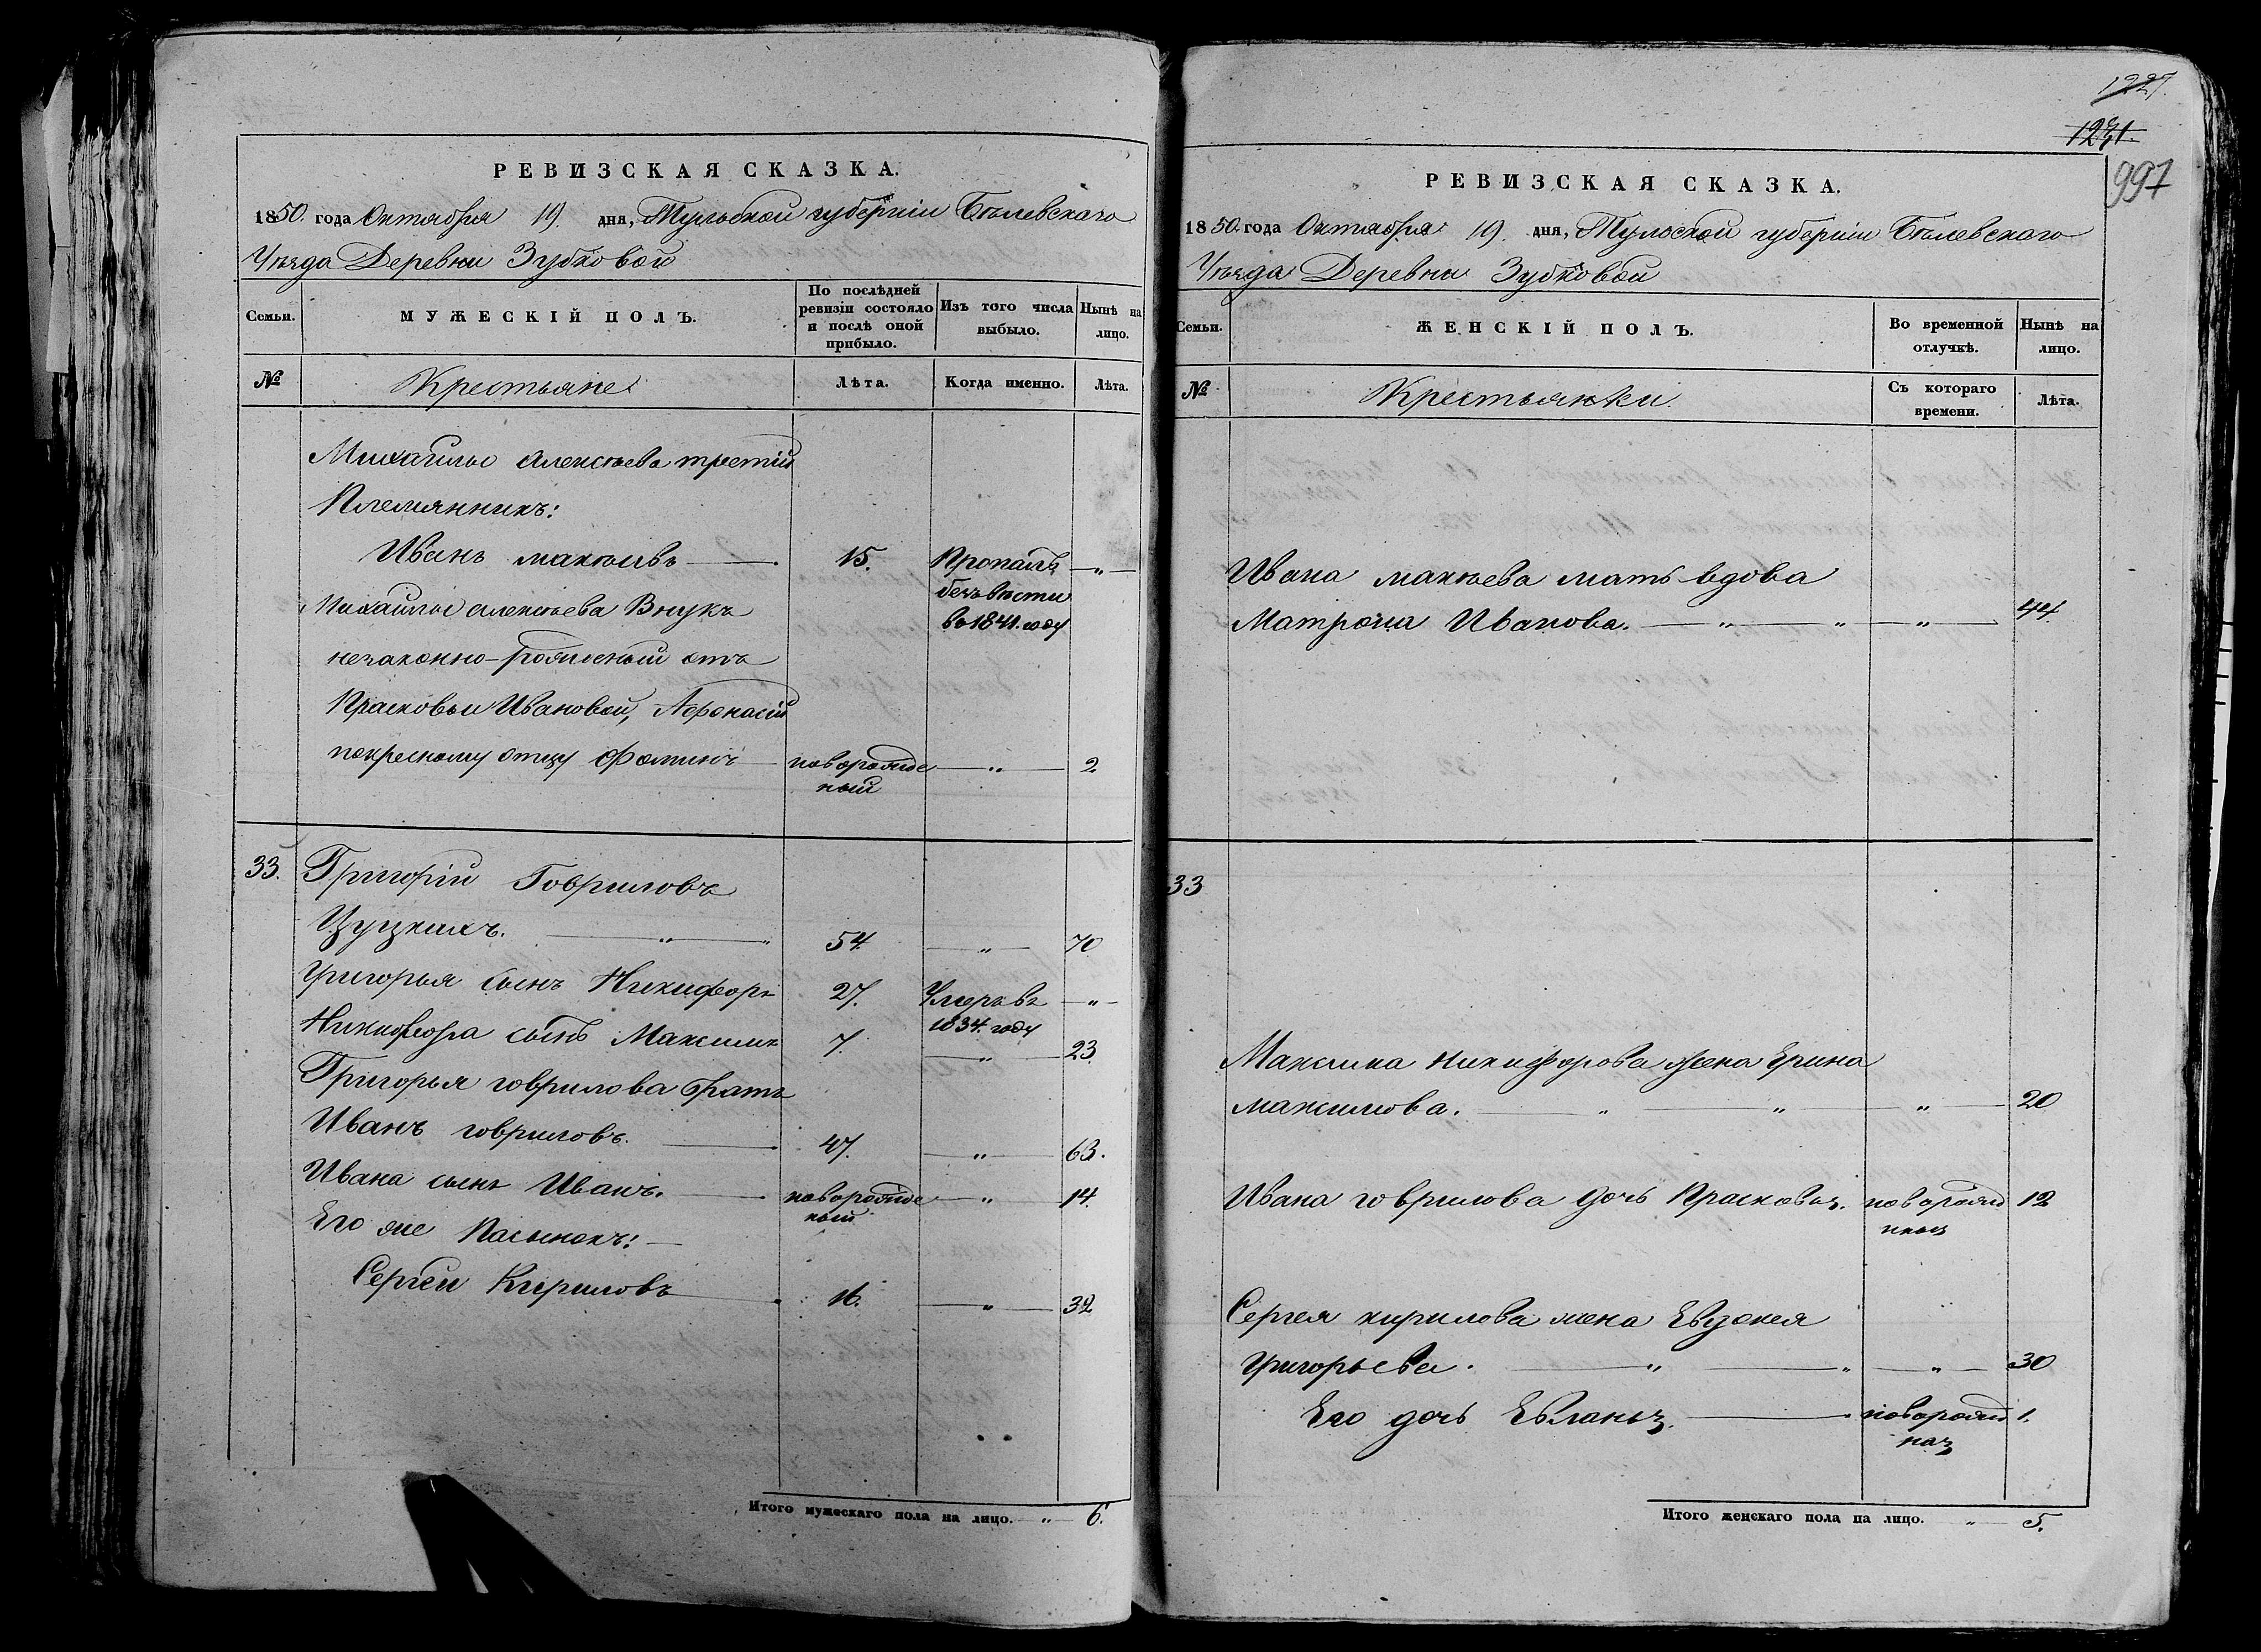 РЕВИЗСКАЯ СКАЗКА.
1850. года Октября 19. дня, Тульской губерніи Бѣлевскаго
Уѣзда Деревни Зубковой
Семьи. МУЖЕСКІЙ ПОЛЪ. По послѣдней ревизіи состояло и послѣ оной прибыло. Изъ того числа выбыло. Нынѣ на лицо.
№ Крестьяне Лѣта. Когда именно. Лѣта.
Михаилы Алексѣева третій
Племянникъ:
Иванъ макѣевъ — 15. Пропалъ — „ —
безъ вѣсти
въ 1841. году
Михаилы алексѣева Внукъ
незаконно-рожденый отъ
Прасковьи Ивановой, Афонасій
покресному отцу Фоминъ — новорожде — „ — 2
ный
33. Григорій Говриловъ
54. — „ — 70
Григорья сынъ Никифоръ 27. Умеръ въ — „ —
1834. году
Никифора сынъ Максимъ 7. — „ — 23.
Григорья говрилова братъ
Иванъ говриловъ. — 47. — „ — 63.
Ивана сынъ Иванъ. — новорожде — „ — 14.
ный
Его же Пасынокъ: —
Сергей Кириловъ — 16. — „ — 32
Итого мужескаго пола на лицо. — „ — 6.
1227.
1231.
997
РЕВИЗСКАЯ СКАЗКА.
1850. года Октября 19. дня, Тульской губерніи Бѣлевскаго
Уѣзда Деревни Зубковой
Семьи. ЖЕНСКІЙ ПОЛЪ. Во временной отлучкѣ. Нынѣ на лицо.
№ Крестьянки. Съ котораго времени. Лѣта.
Ивана макѣева мать вдова
Матрена Иванова. — „ — „ — „ — 44.
33
Максима Никифорова жена Ерина
максимова. — „ — „ — „ — 20
Ивана говрилова дочь Прасковья. новорожд 12
Сергея кирилова жена Евдокея
Григорьева. — „ — „ — „ — 30
Его дочь Евланья. — новорожд 1.
ная
Итого женскаго пола на лицо. „ — 5.